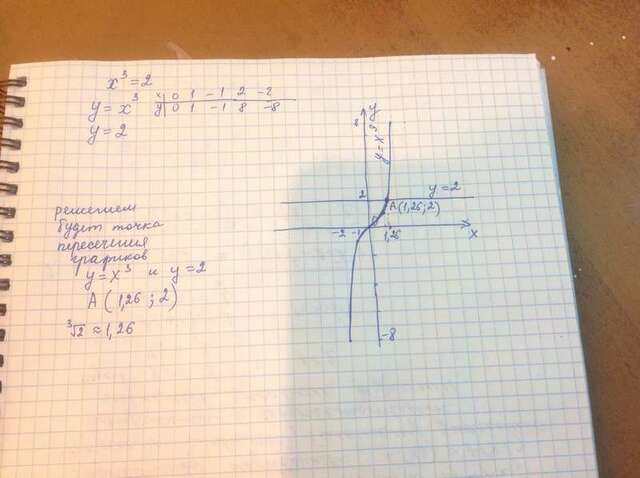 x³=2
y=x³
x 0 1 -1 2 -2
y 0 1 -1 8 -8
y=2
решением
будет точка
пересечения
графиков
y=x³ и y=2
A(1,26;2)
³√2≈1,26
y
8
y=x³
2
y=2
A(1,26;2)
-2 -1
1,26
x
-8